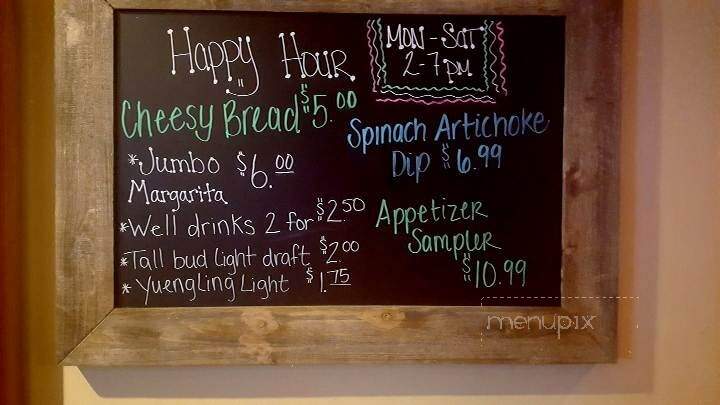 Happy Hour
MON - SAT
2-7pm
Cheesy Bread $5.00
*Jumbo $6.00
Margarita
*Well drinks 2 for $2.50
*Tall bud light draft $2.00
*Yuengling Light $1.75
Spinach Artichoke
Dip $6.99
Appetizer
Sampler
$10.99
menupix